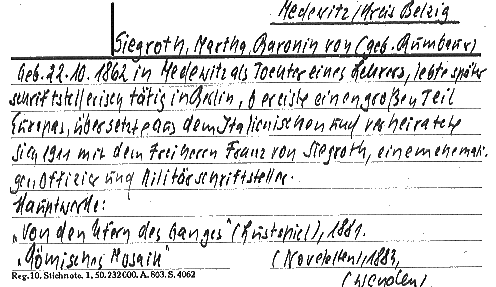 Medewitz/Kreis Belzig
Siegroth, Martha, Baronin von (geb. Rumbaur)
Geb. 22.10.1862 in Medewitz als Tochter eines Lehrers, lebte später
schriftstellerisch tätig in Berlin, bereiste einen großen Teil
Europas, übersetzte aus dem Italienischen und verheiratete
sich 1911 mit dem Freiherrn Franz von Siegroth, einem ehemali-
gen Offizier und Militärschriftsteller.
Hauptwerke:
"Von den Ufern des Ganges" (Lustspiel), 1881.
"Römisches Mosaik" (Novelletten), 1889,
(wenden).
Reg. 10. Stichnote. 1, 50. 232000. A. 803. S. 4062